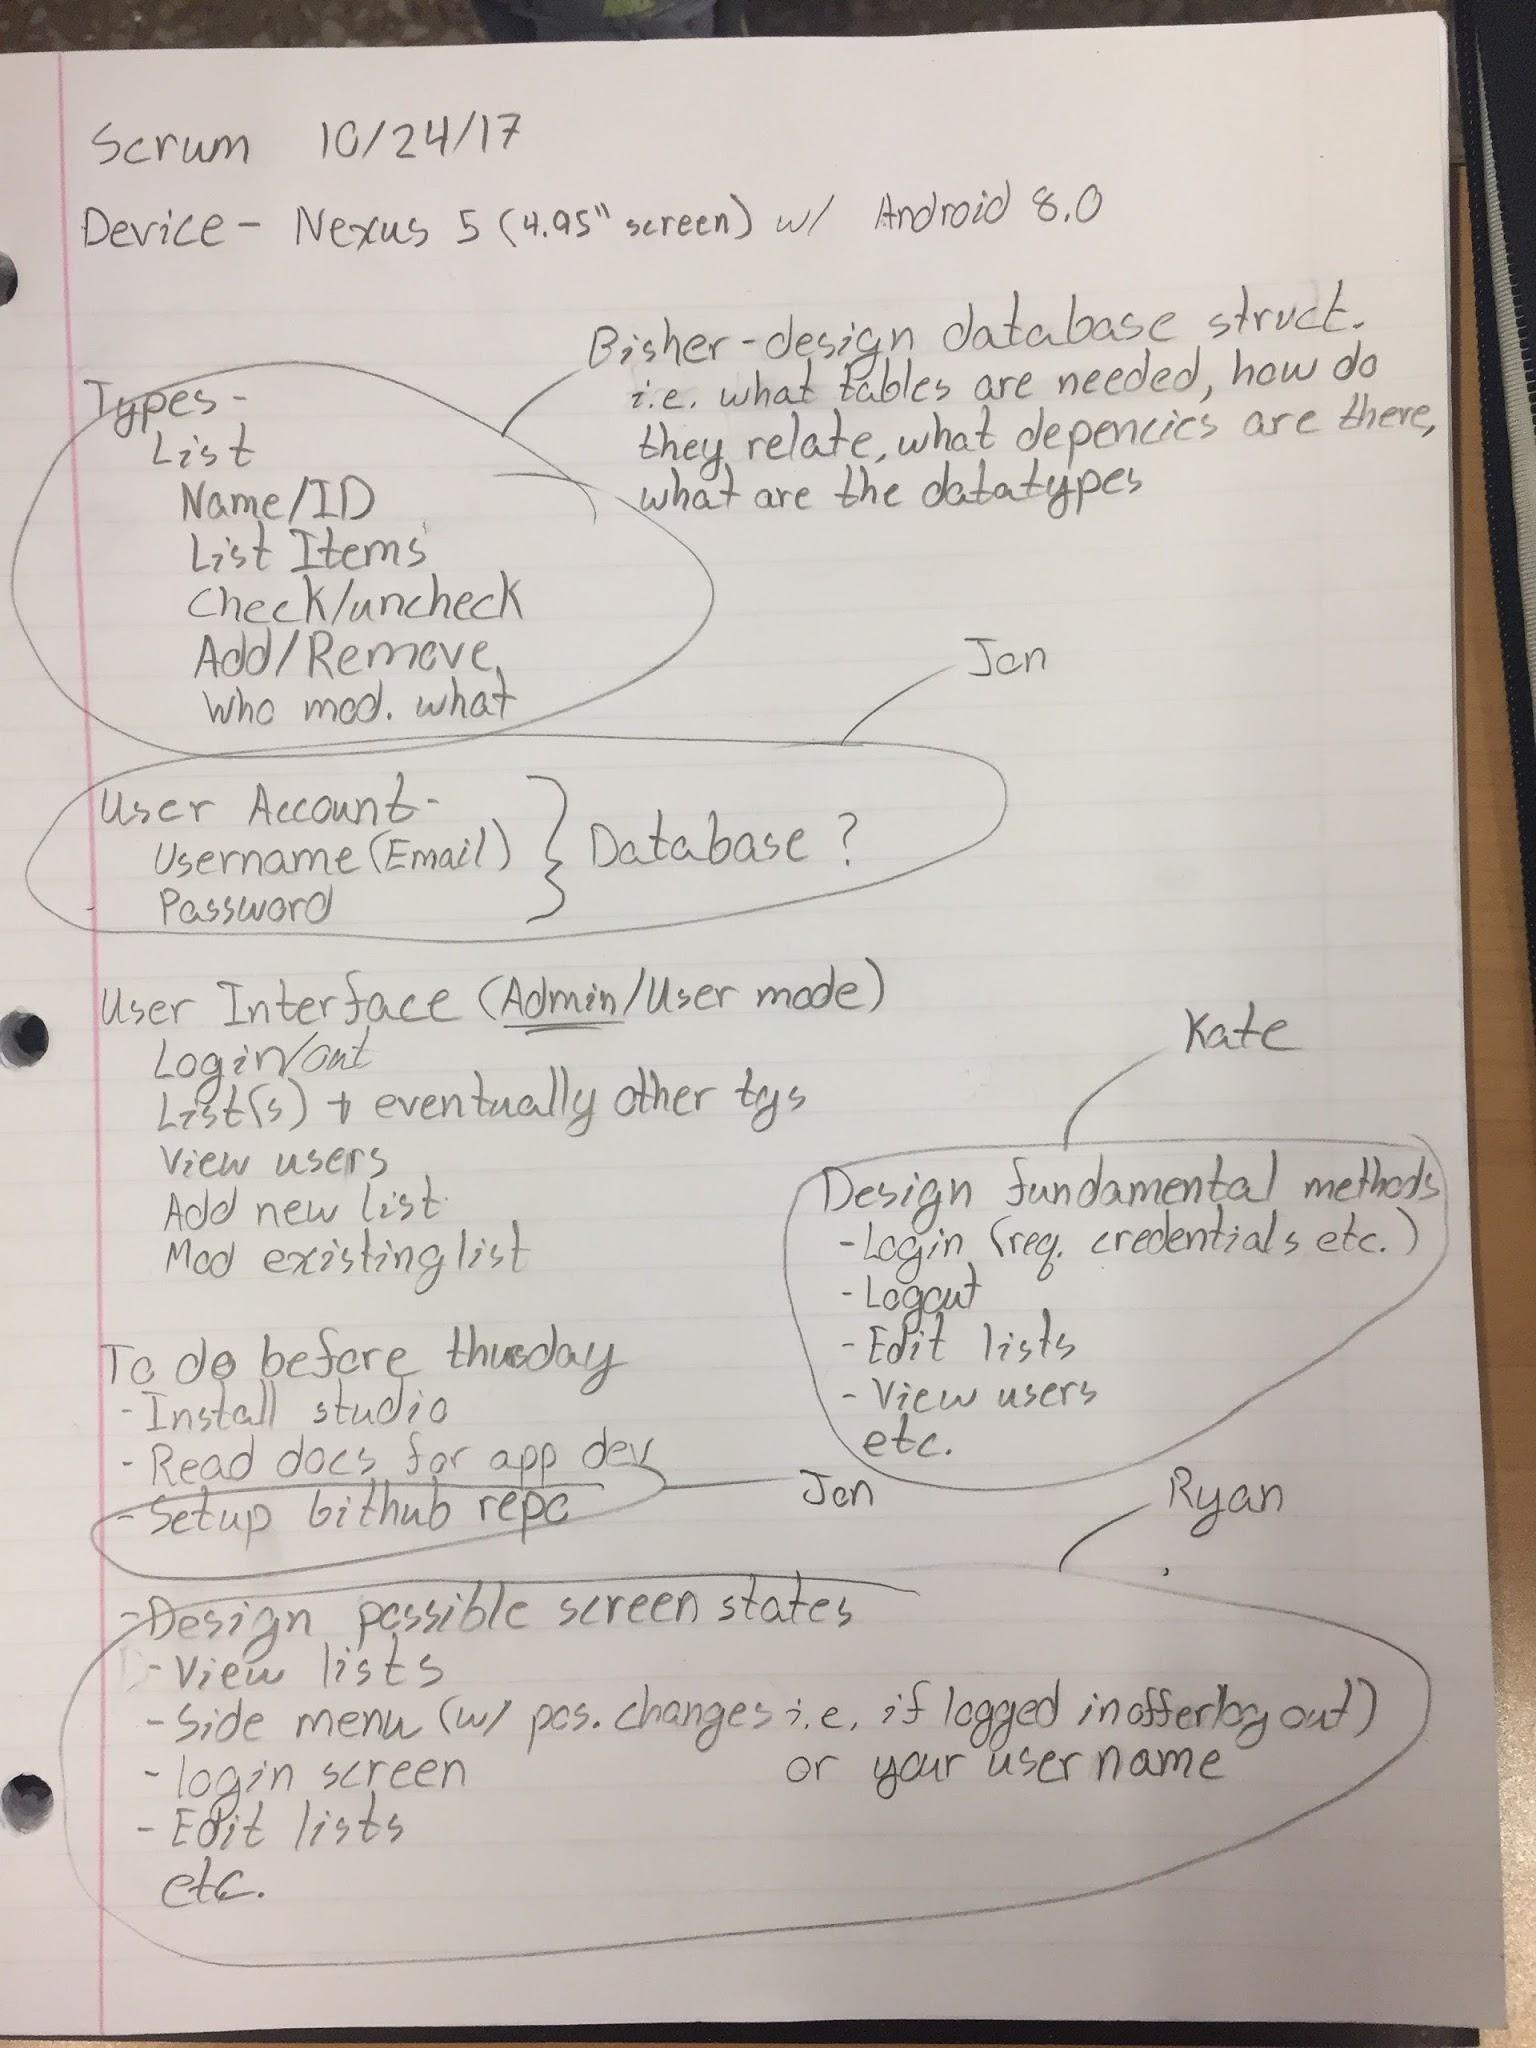 Scrum 10/24/17
Device - Nexus 5 (4.95" screen) w/ Android 8.0
Bisher - design database struct.
i.e. what tables are needed, how do
they relate, what depencies are there,
what are the datatypes
Types -
List
Name/ID
List Items
Check/uncheck
Add/Remove
Who mod. what
Jon
User Account -
Username (Email)
Password
Database ?
User Interface (Admin/User mode)
Login/out
List(s) + eventually other tys
View users
Add new list
Mod existing list
Kate
Design fundamental methods
- Login (req. credentials etc.)
- Logout
- Edit lists
- View users
etc.
To do before thusday
- Install studio
- Read docs for app dev
- Setup Github repo
Jon
Ryan
- Design possible screen states
- View lists
- Side menu (w/ pos. changes i.e. if logged in offer log out)
or your user name
- login screen
- Edit lists
etc.